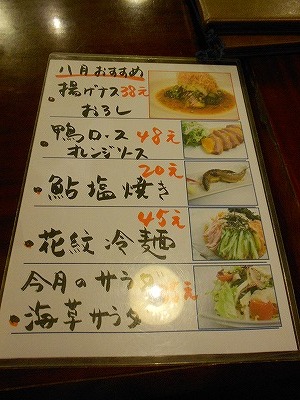 八月おすすめ
・揚げナス38元
おろし
・鴨ロース48元
オレンジソース
20元
・鮎塩焼き
45元
・花紋冷麺
今月のサラダ
元
・海草サラダ